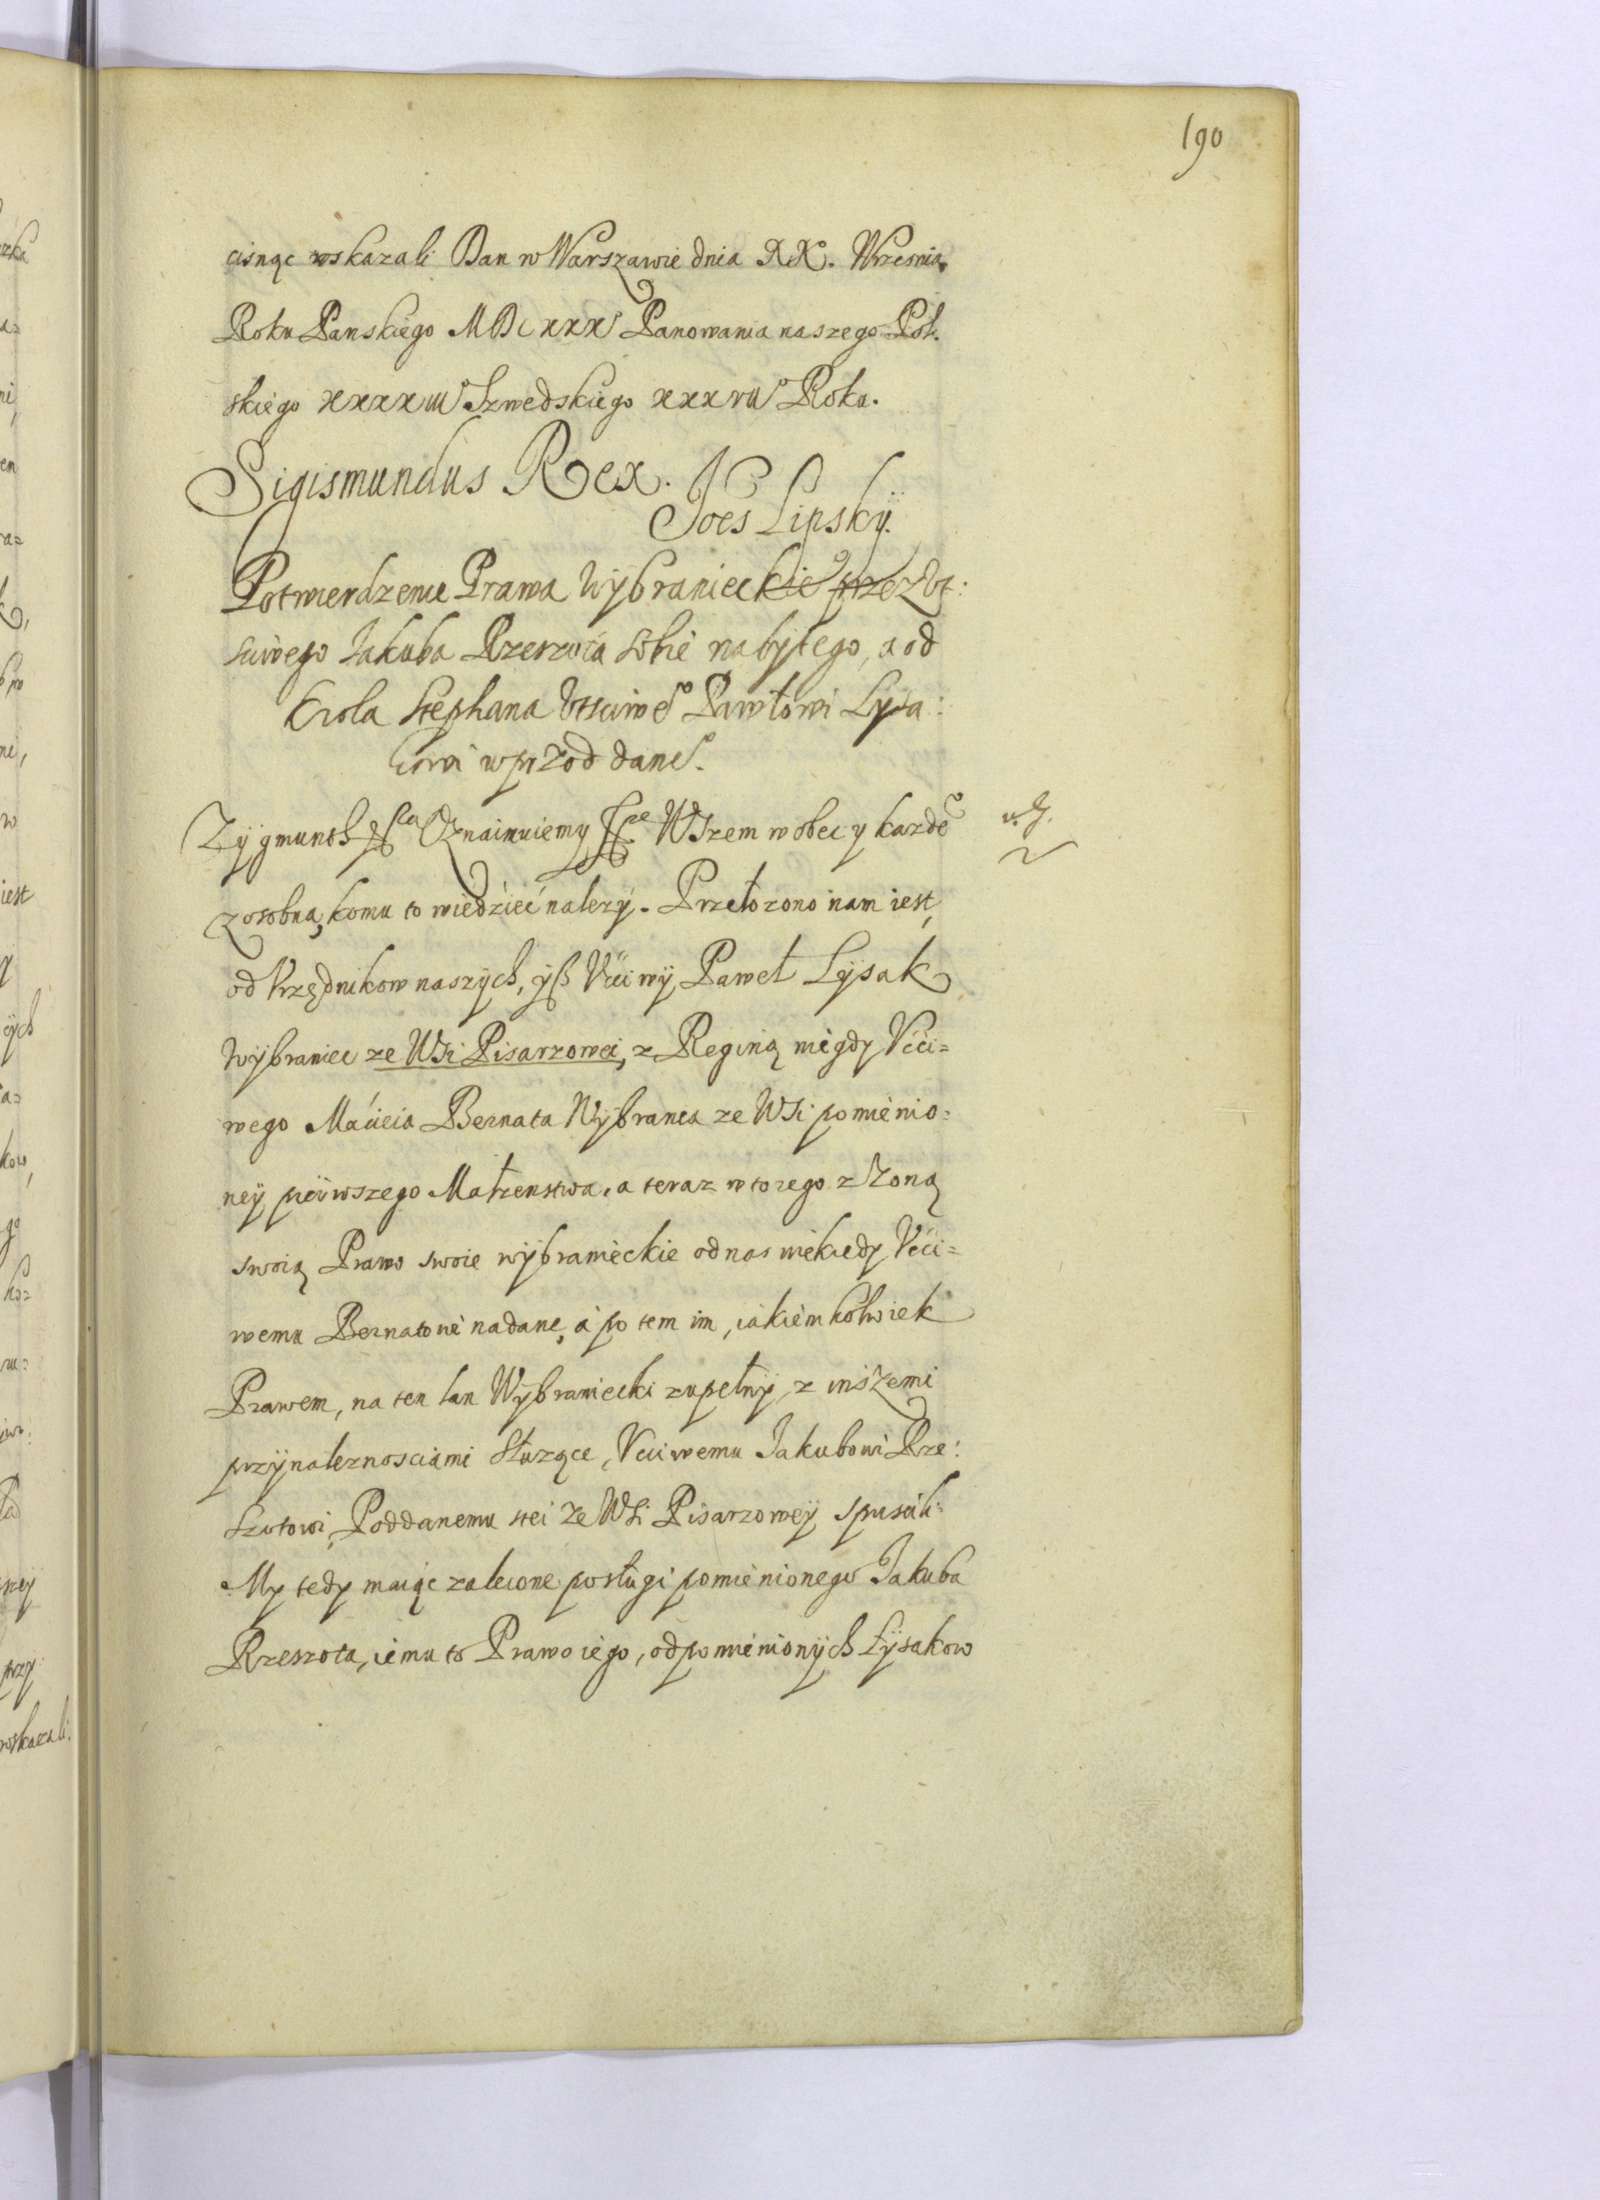 190
cisnąc roskazali Dan w Warszawie dnia XX. Wrzesnia
Roku Panskiego MDCXXX Panowania naszego Pol.
skiego XXXXIII Szwedskiego XXXVII Roku.
Sigismundus Rex.
Joes Lipsky.
Potwierdzenie Prawa Wybranieckie° przez Vt:
sciwego Jakuba Rzeszota sobie nabytego, a od
Krola Stephana Vtsciwe° Pawłowi Lysa:
kowi wprzod dane°.
Zygmunth Oznaimuiemy Wszem wobec y kazde°
zosobna, komu to wiedzieć nalezy. Przełozono nam iest,
od Vrzędnikow naszych, yß Vćiwy Paweł Lysak
Wybraniec ze Wsi Pisarzowei, z Reginą niegdy Vćci=
wego Maćieia Bernata Wybranca ze Wsi pomienio=
ney pierwszego Małzenstwa, a teraz wtorego z Zoną
swoią Prawo swoie wybranieckie od nas niekiedy Vćci=
wemu Bernatowi nadane, a potem im, iakiemkolwiek
Prawem, na ten łan Wybraniecki zupełny, z inszemi
przynaleznosciami słuzące, Vcciwemu Jakubowi Rze:
szotowi, Poddanemu stei ze Wsi Pisarzowey spuscili:
My tedy maiąc zalecone posługi pomienionego Jakuba
Rzeszota, iemu to Prawo iego, od pomienionych Łysakow